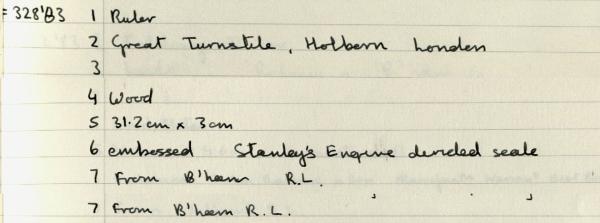 = 328'83 1 Ruler
2 Great Turnstile, Holbern London
3
4 Wood
5 31.2cm x 3cm
6 embossed Stanley's Engine divided scale
7 From B'ham R.L.
7 From B'ham R.L.